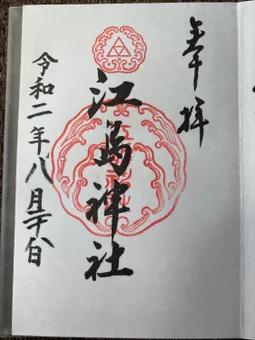 奉拝
江島神社
令和二年八月廿八日